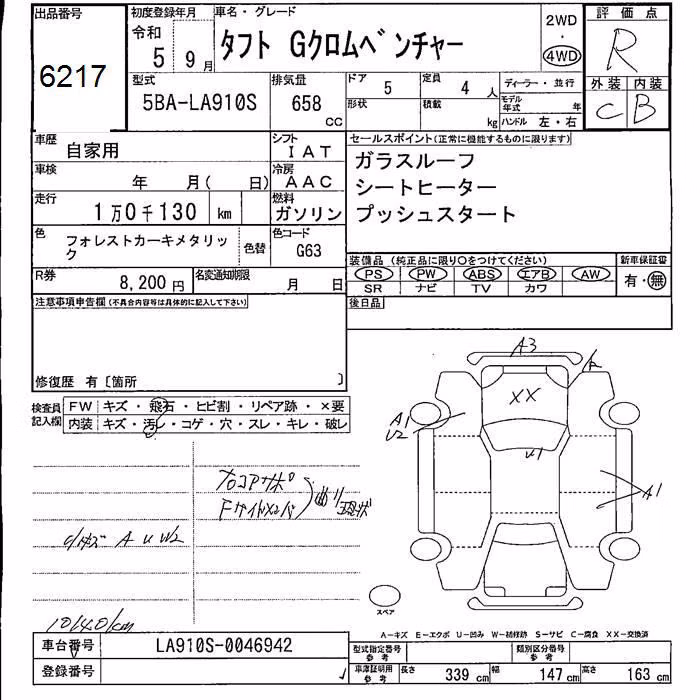 出品番号 初度登録年月 車名・グレード 2WD 評価点
6217 令和 5年 9月 タフト Gクロムベンチャー ・ 4WD R
型式 排気量 ドア 定員 ディーラー・並行 外装 内装
5BA-LA910S 658 CC 5 4人 モデル年式 年 C B
形状 積載 kg ハンドル 左・右
車歴 自家用 シフト IAT セールスポイント(正常に機能するものに限ります)
車検 年 月( 日) 冷房 AAC ガラスルーフ
走行 1万0千130 km 燃料 ガソリン シートヒーター
プッシュスタート
色 フォレストカーキメタリック 色替 色コード G63
装備品(純正品に限り○をつけてください) 新車保証書
PS PW ABS エアB AW 有・無
SR ナビ TV カワ
R券 8,200円 名変通知期限 月 日
後日品
注意事項申告欄(不具合内容等は具体的に記入して下さい)
修復歴 有〔箇所 〕
検査員記入欄 FW キズ・飛石・ヒビ割・リペア跡・×要
内装 キズ・汚レ・コゲ・穴・スレ・キレ・破レ
A3
XX
A1
U2
U1
A1
小キズ A U W2
10140km
スペア
A-キズ E-エクボ U-凹み W-補修跡 S-サビ C-腐食 XX-交換済
車台番号 LA910S-0046942 型式指定番号 参考 類別区分番号 参考
登録番号 車庫証明用 参考 長さ 339 cm 幅 147 cm 高さ 163 cm